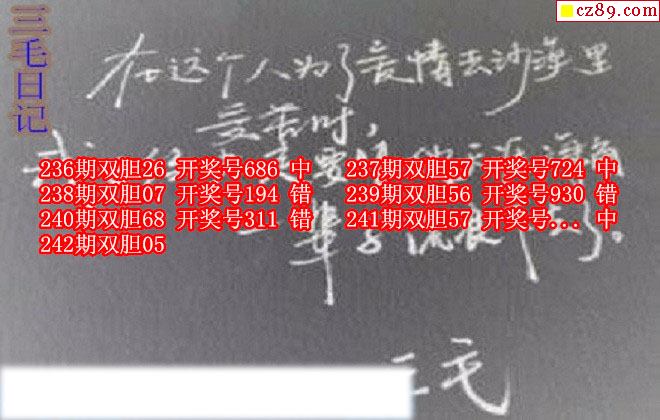 三毛日记
cz89.com
在这个人为了爱情去沙漠里
受苦时,
236期双胆26 开奖号686 中 237期双胆57 开奖号724 中
238期双胆07 开奖号194 错 239期双胆56 开奖号930 错
240期双胆68 开奖号311 错 241期双胆57 开奖号... 中
242期双胆05
一辈子流浪下去了。
三毛